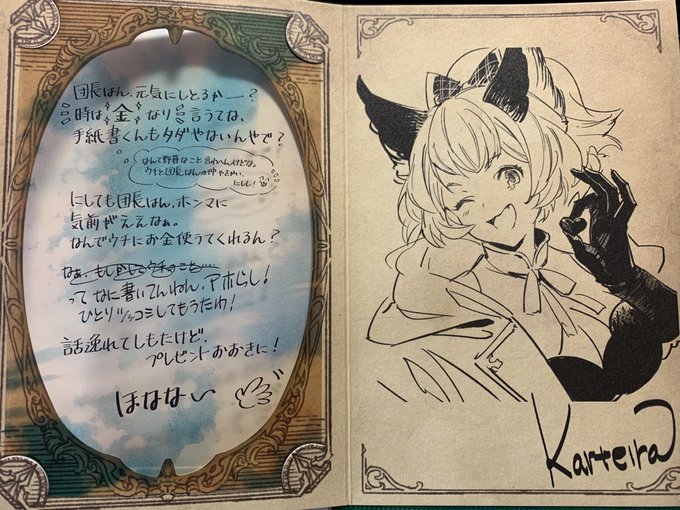 団長はん、元気にしとるかー？
時は金なり言うてな、
手紙書くんもタダやないんやで？
なんて野暮なこと言わへんけどな。
ウチと団長はんの仲やさかい、
にしし！
にしても団長はん、ホンマに
気前がええなぁ。
なんでウチにお金使うてくれるん？
なぁ、もしかしてウチのこと……
って なに書いてんねん、アホらし！
ひとりツッコミしてもうたわ！
話逸れてしもたけど、
プレゼントおおきに！
ほなない
Karteira